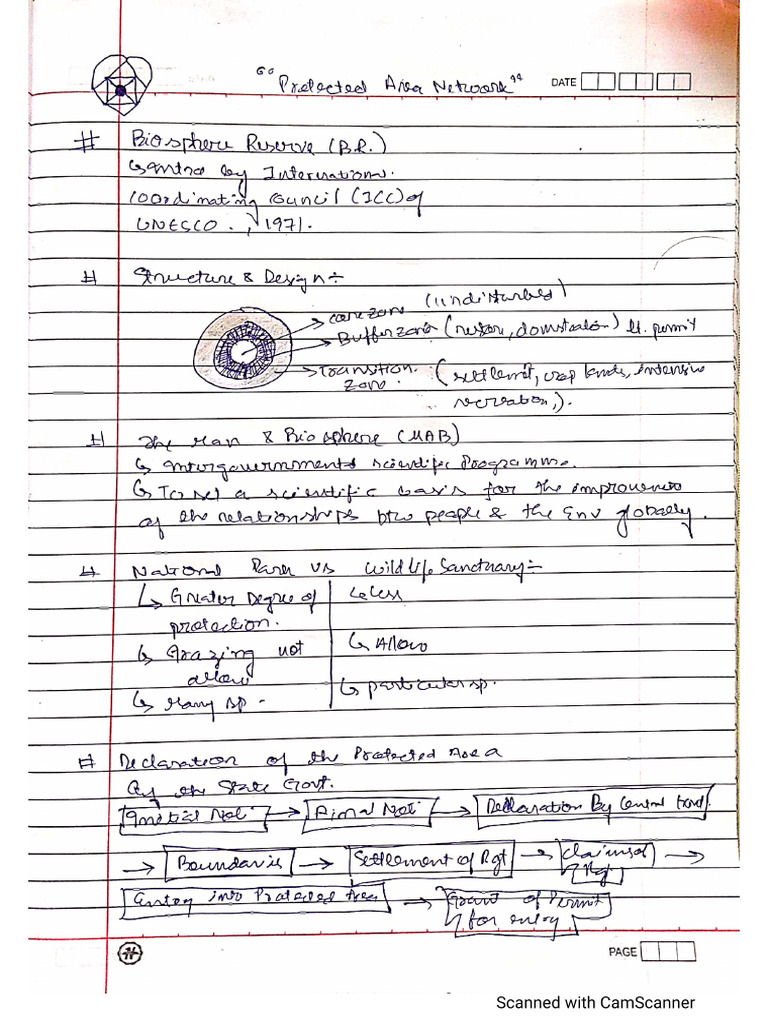 "Protected Area Network" DATE
# Biosphere Reserve (B.R.)
↳ intro by International
Coordinating Council (ICC) of
UNESCO., 1971.
# Structure & Design ÷
→ core zone (undisturbed)
→ Buffer zone (reson, domstcation) lt. permit
→ Transition (settlemnt, crop lands, intensive
zone. recreation,).
# The Man & Biosphere (MAB)
↳ Intergovernments scientific Programme.
↳ To set a scientific basis for the improvement
of the relationships btw people & the Env globally.
# National Park vs Wild life Sanctuary ÷
↳ Greater Degree of ↳ Less
protection.
↳ Grazing not ↳ Allow
allow
↳ Many sp. ↳ particular sp.
# Declaration of the Protected Area
By the State Govt.
Initial Noti → Final Noti → Declaration By Central Govt.
→ Boundaries → Settlement of Rgt → Claims of →
Rgt
Entry into Protected Area → Grant of Permit
for entry
PAGE
Scanned with CamScanner